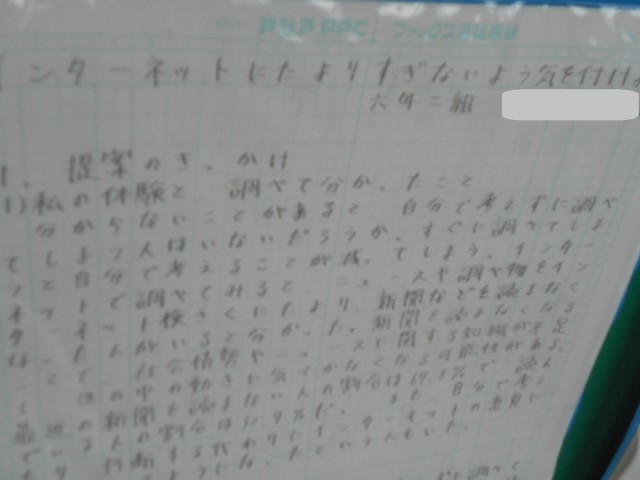 インターネットにたよりすぎないよう気を付け
六年二組
1. 提案のきっかけ
(1)私の体験と、調べて分かったこと
分からないことがあると、自分で考えずに調べ
てしまう人はいないだろうか。すぐに調べてしま
うと自分で考えることが減ってしまう。インター
ネットで調べてみると、ニュースや調べ物をイン
ターネット検さくにたより、新聞などを読まなく
なった人がいると分かった。新聞を読まなくなる
ことで、社会情勢やニュースに関する知識が不足
し、世の中の動きに気づかなくなる可能性がある。
最近の新聞を読まない人の割合は
でいる人の割合は　　　　　また、自分で考え
たり、判断する代わりにインターネットの意見に
ようになったという人もいた。